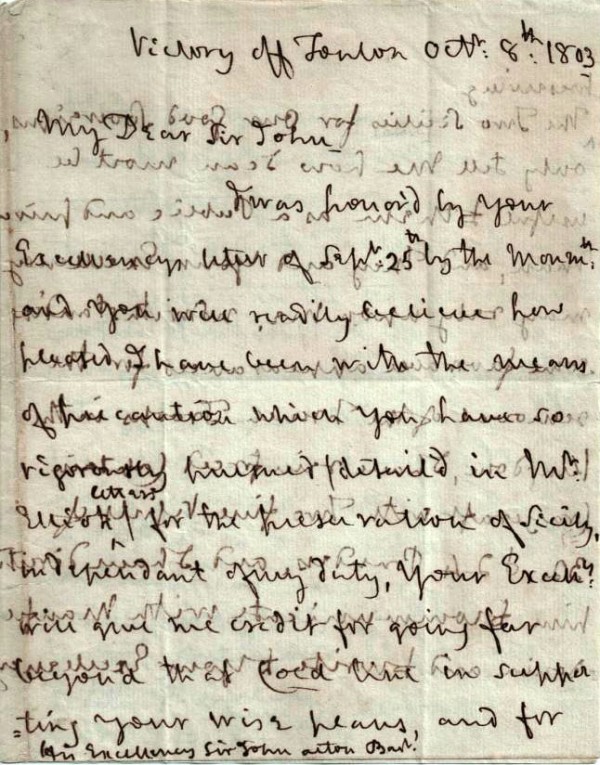 Victory off Toulon Octr. 8th. 1803
My Dear Sir John
I was honor'd by your
Excellencys letter of Sept. 25th by the
and you will readily believe how
pleased I have been with the means
of precaution which you have so
vigorously pursued /detail'd in Mr.
letters
Elliots/ for the preservation of Sicily,
independant of my duty, Your Excelly.
will give me credit for going far
beyond that Cold line in suppor
=ting your wise plans, and for
His Excellency Sir John Acton Bart.